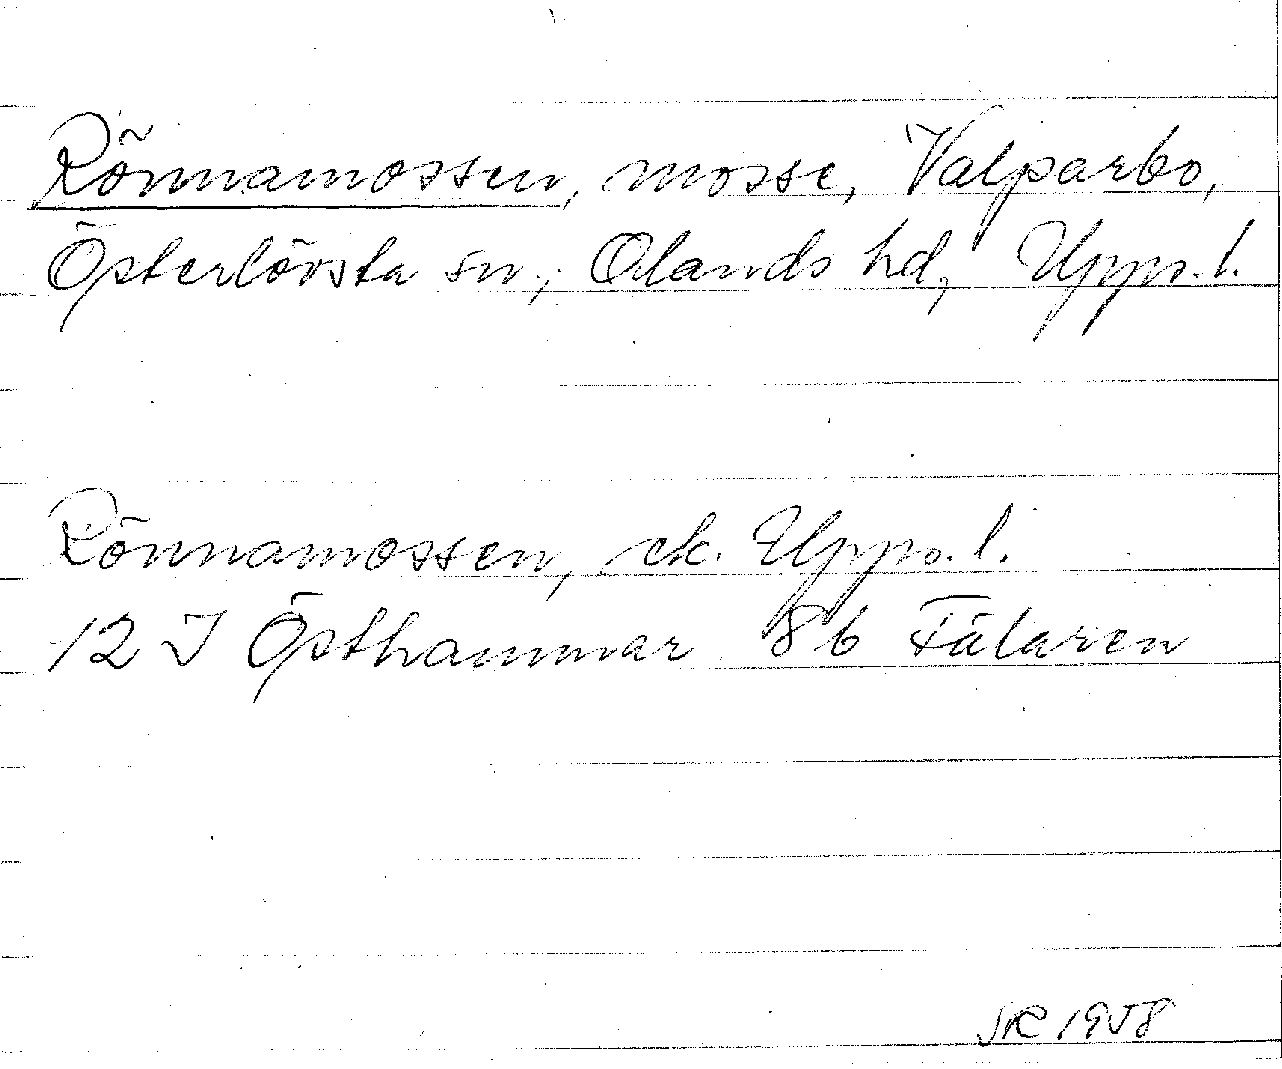 Rönnamossen, mosse, Valparbo,
Österlövsta sn, Olands hd, Upps. l.
Rönnamossen, ek. Upps. l.
12 I Östhammar 8b Fälaren
SR 1958